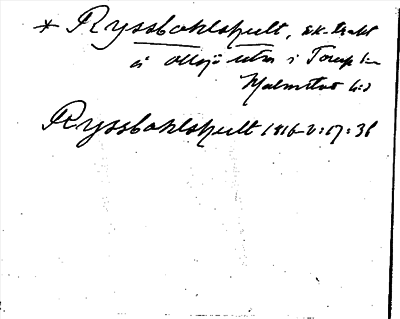 * Ryssbohlshult, sk. trakt
å Allsjö utm. i Torup sn
Halmstad hd
Ryssbohlshult 1916-2:17:36